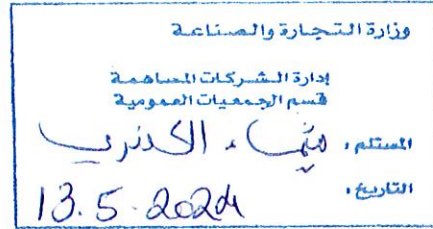 وزارة التجارة والصناعة
إدارة الشركات المساهمة
قسم الجمعيات العمومية
المستلم: الكندري
التاريخ: 13.5.2024